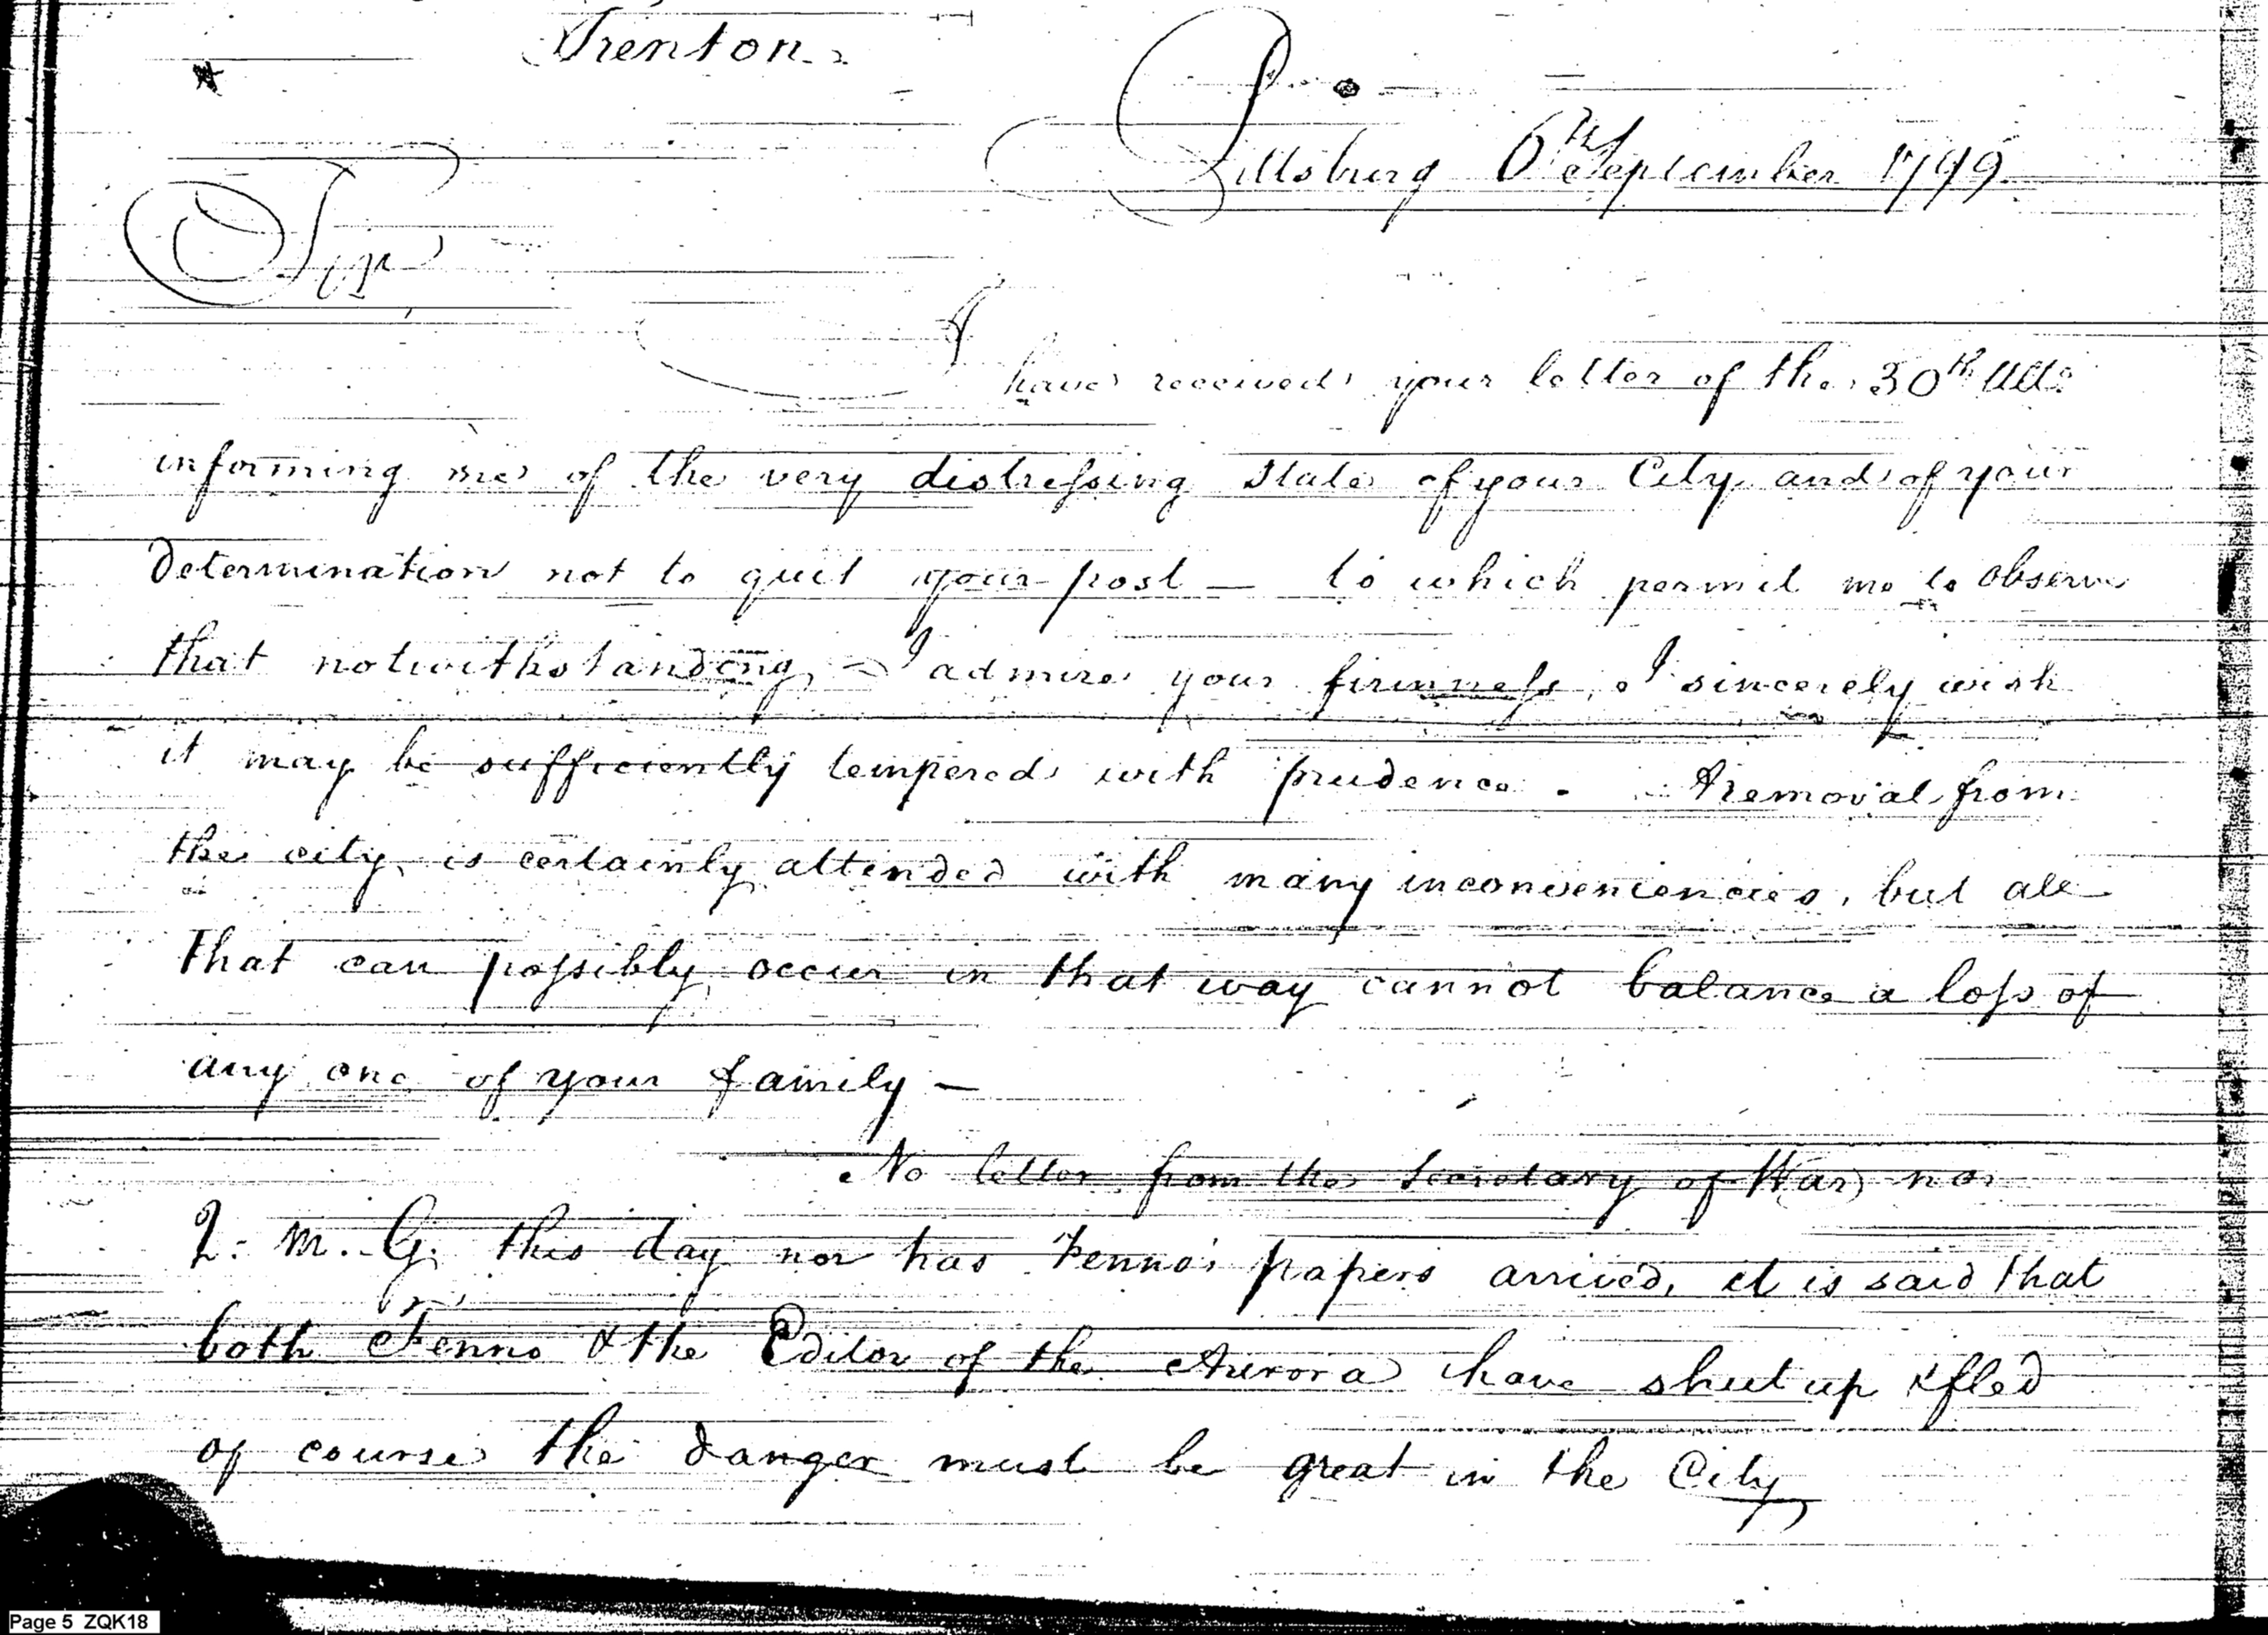 Trenton.
Pittsburg 6th September 1799.
Sir
I have received your letter of the 30th Ulto
informing me of the very distressing state of your City and of your
determination not to quit your post — to which permit me to observe
that notwithstanding, I admire your firmness, I sincerely wish
it may be sufficiently tempered with prudence. A removal from
the city, is certainly attended with many inconveniencies, but all
that can possibly occur in that way cannot balance a loss of
any one of your family —
No letter from the Secretary of War nor
Q. M. G. this day nor has Fenno's papers arrived, it is said that
both Fenno & the Editor of the Aurora have shut up & fled
of course the danger must be great in the City
Page 5 ZQK18